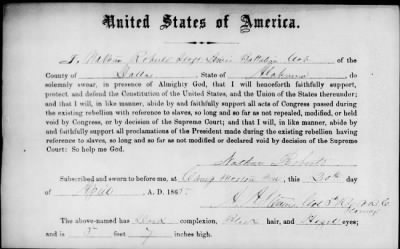 United States of America.
I, Nathan Roberts of the
County of Dallas State of Alabama, do
solemnly swear, in presence of Almighty God, that I will henceforth faithfully support,
protect, and defend the Constitution of the United States, and the Union of the States thereunder;
and that I will, in like manner, abide by and faithfully support all acts of Congress passed during
the existing rebellion with reference to slaves, so long and so far as not repealed, modified, or held
void by Congress, or by decision of the Supreme Court; and that I will, in like manner, abide by
and faithfully support all proclamations of the President made during the existing rebellion having
reference to slaves, so long and so far as not modified or declared void by decision of the Supreme
Court: So help me God.
Nathan Roberts
Subscribed and sworn to before me, at this 20th day
of A. D. 1865
The above-named has complexion, hair, and Hazel eyes;
and is 5 feet 7 inches high.